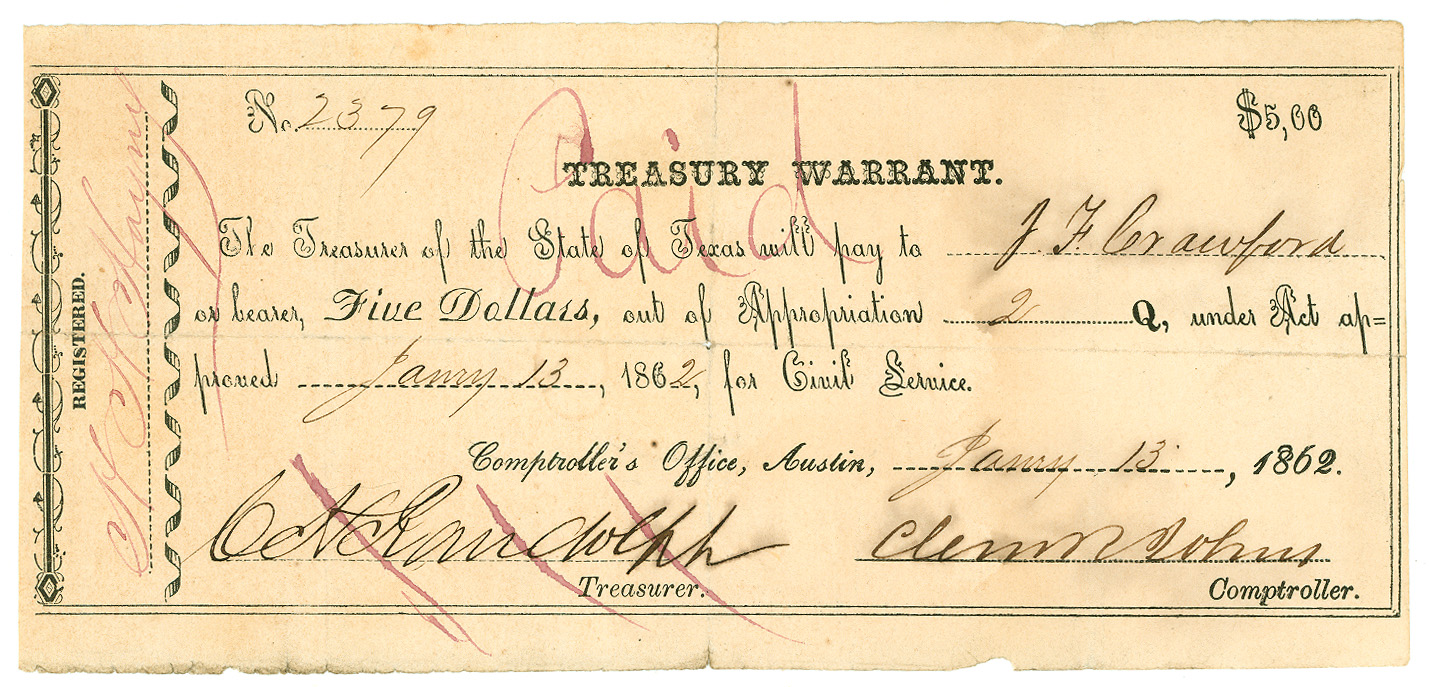 No. 2379
$5,00
Paid
TREASURY WARRANT.
The Treasurer of the State of Texas will pay to J. F. Crawford
or bearer, Five Dollars, out of Appropriation 2 Q, under Act ap=
proved Janry 13, 1862, for Civil Service.
Comptroller's Office, Austin, Janry 13, 1862.
C H Randolph
Treasurer.
Clem R Johns
Comptroller.
REGISTERED.